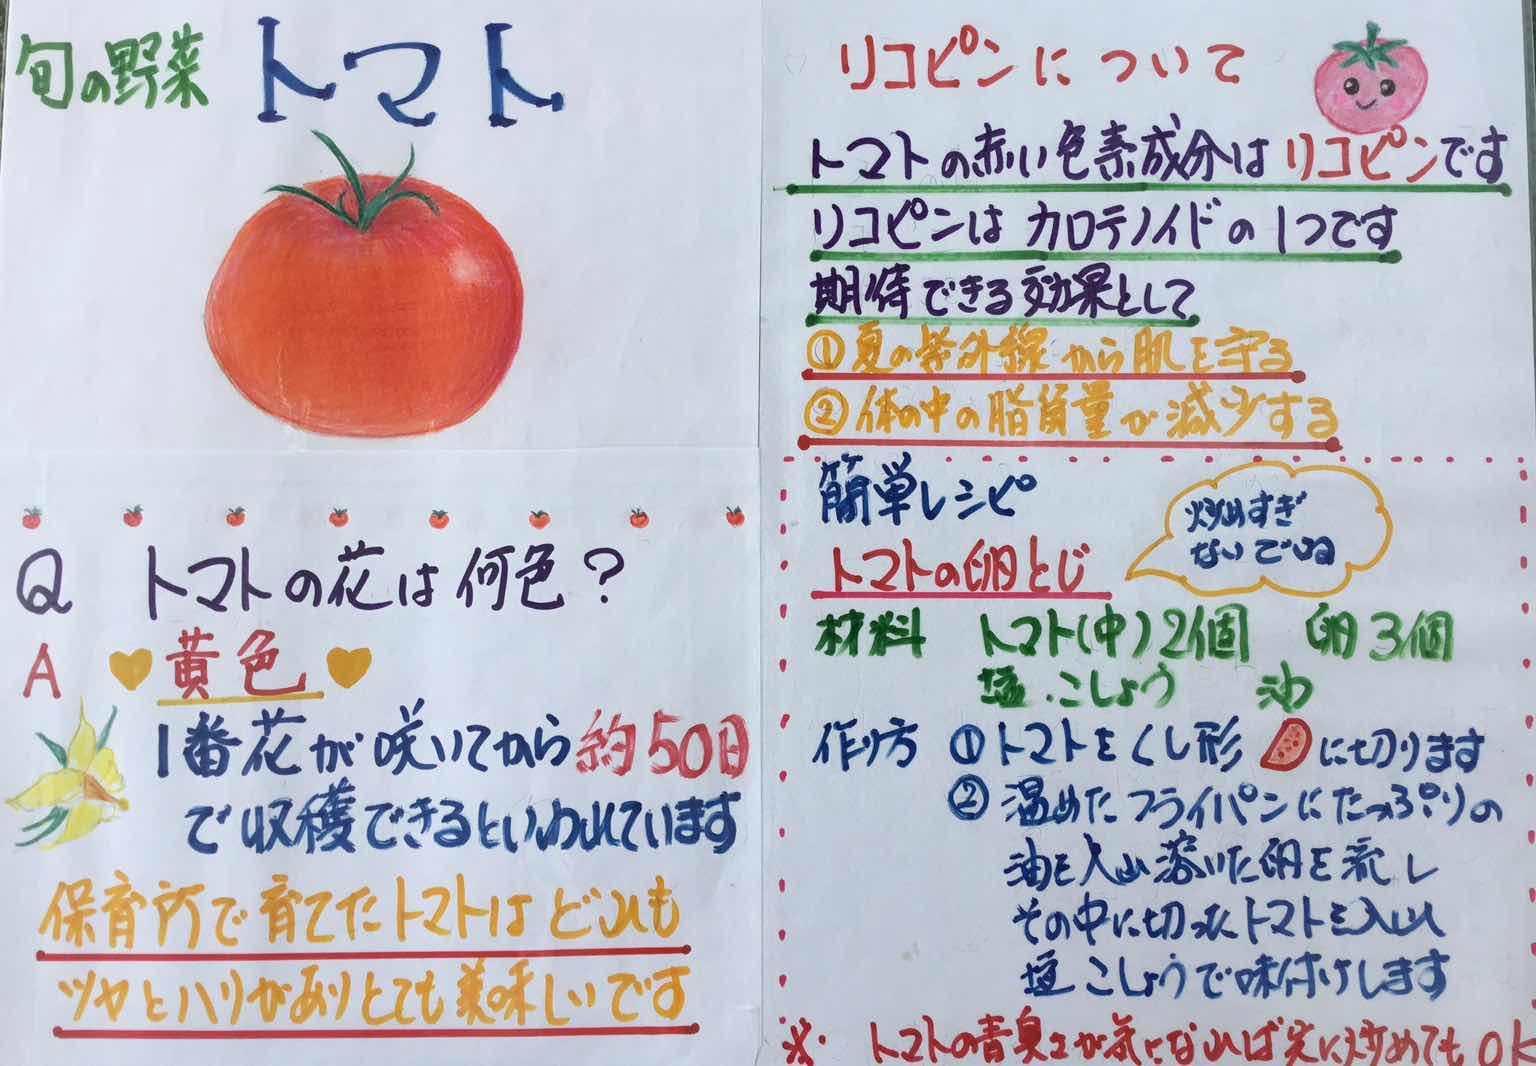 旬の野菜 トマト
Q トマトの花は何色?
A 黄色
1番花が咲いてから約50日
で収穫できるといわれています
保育所で育てたトマトはどれも
ツヤとハリがありとても美味しいです
リコピンについて
トマトの赤い色素成分はリコピンです
リコピンはカロテノイドの1つです
期待できる効果として
①夏の紫外線から肌を守る
②体の中の脂質量が減少する
簡単レシピ
炒めすぎ
ないでいね
トマトの卵とじ
材料 トマト(中)2個 卵3個
塩・こしょう 油
作り方 ①トマトをくし形に切ります
②温めたフライパンにたっぷりの
油を入れ溶いた卵を流し
その中に切ったトマトを入れ
塩、こしょうで味付けします
※ トマトの青臭さが気になれば先に炒めてもOK